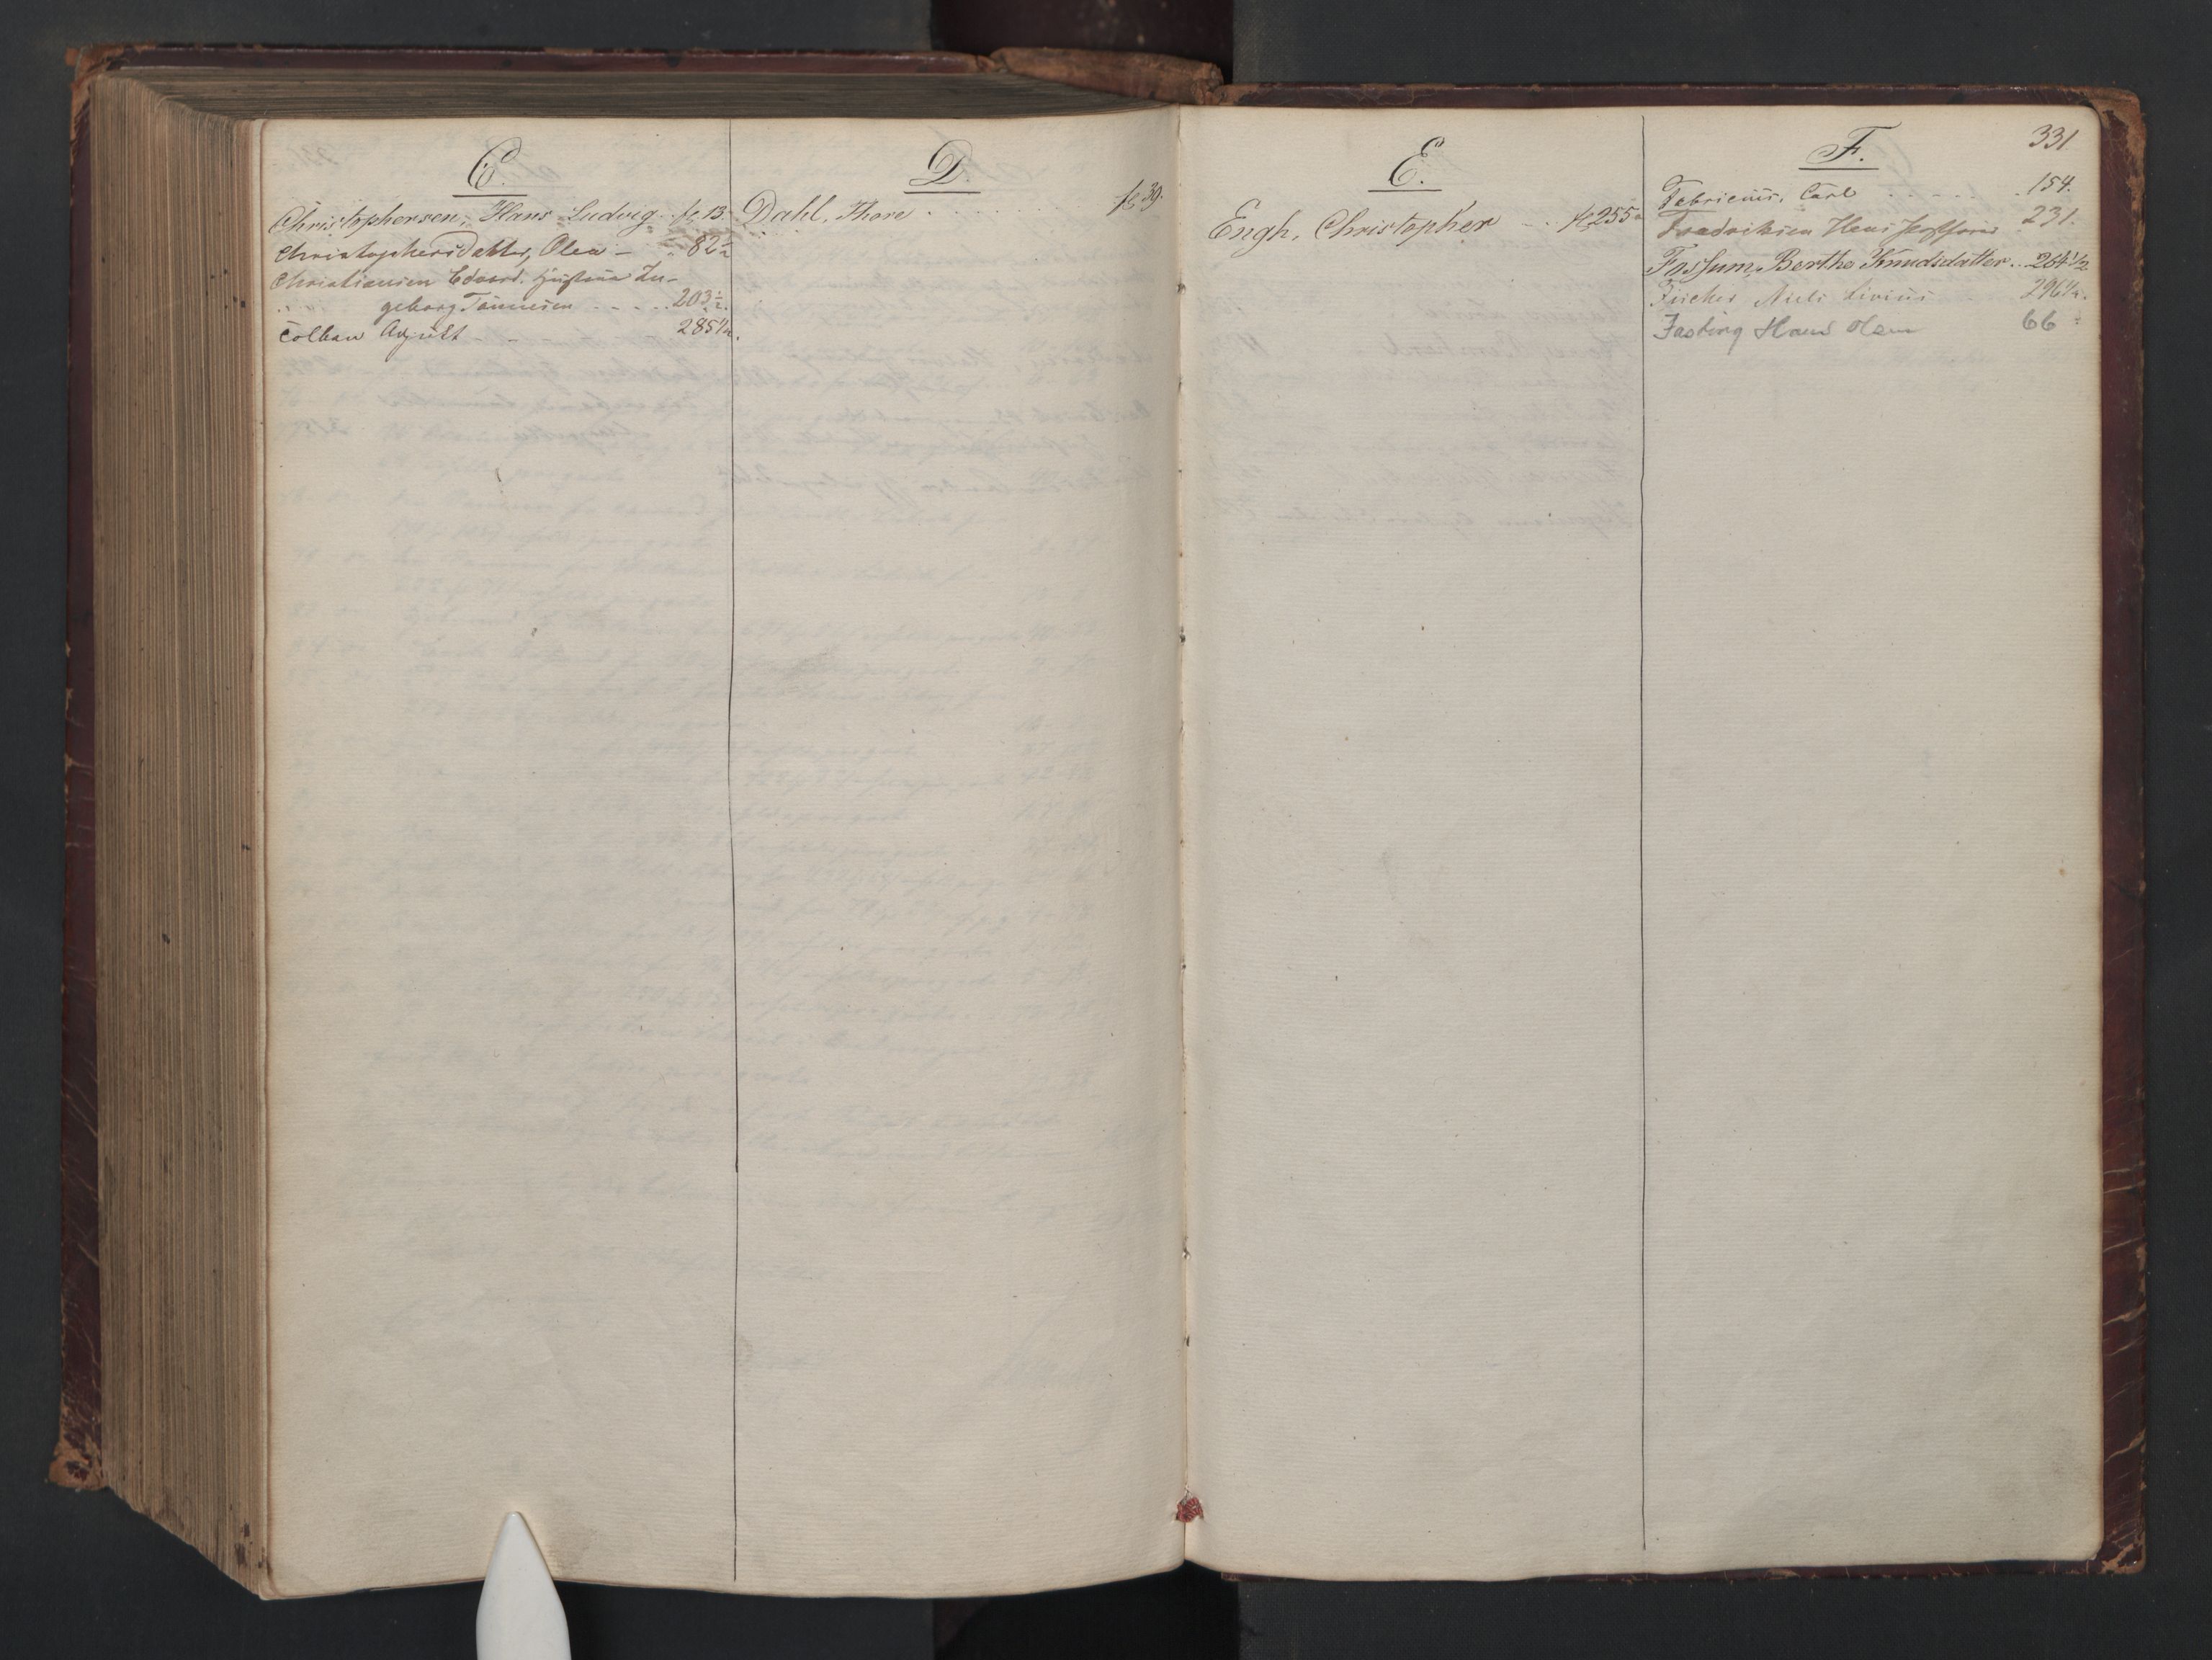 C.
Christophersen, Hans Ludvig. fo. 13.
Christophersdatter, Olea - " 82½
Christiansen Edvard. Hustrue In-
geborg Tönnesen - - - - 203½.
Colban Adjunkt - 285½.
D.
Dahl, Thore . . . . . . . . fo. 39.
E.
Engh, Christopher - . . fo. 255
331
F.
Fabricius, Carl . . - - - . 154.
Fredriksen Hans 231.
Fossum, Berthe Knudsdatter . . 264½
Fischer Niels Livius - 296½.
Fasting Hans Olsen 66